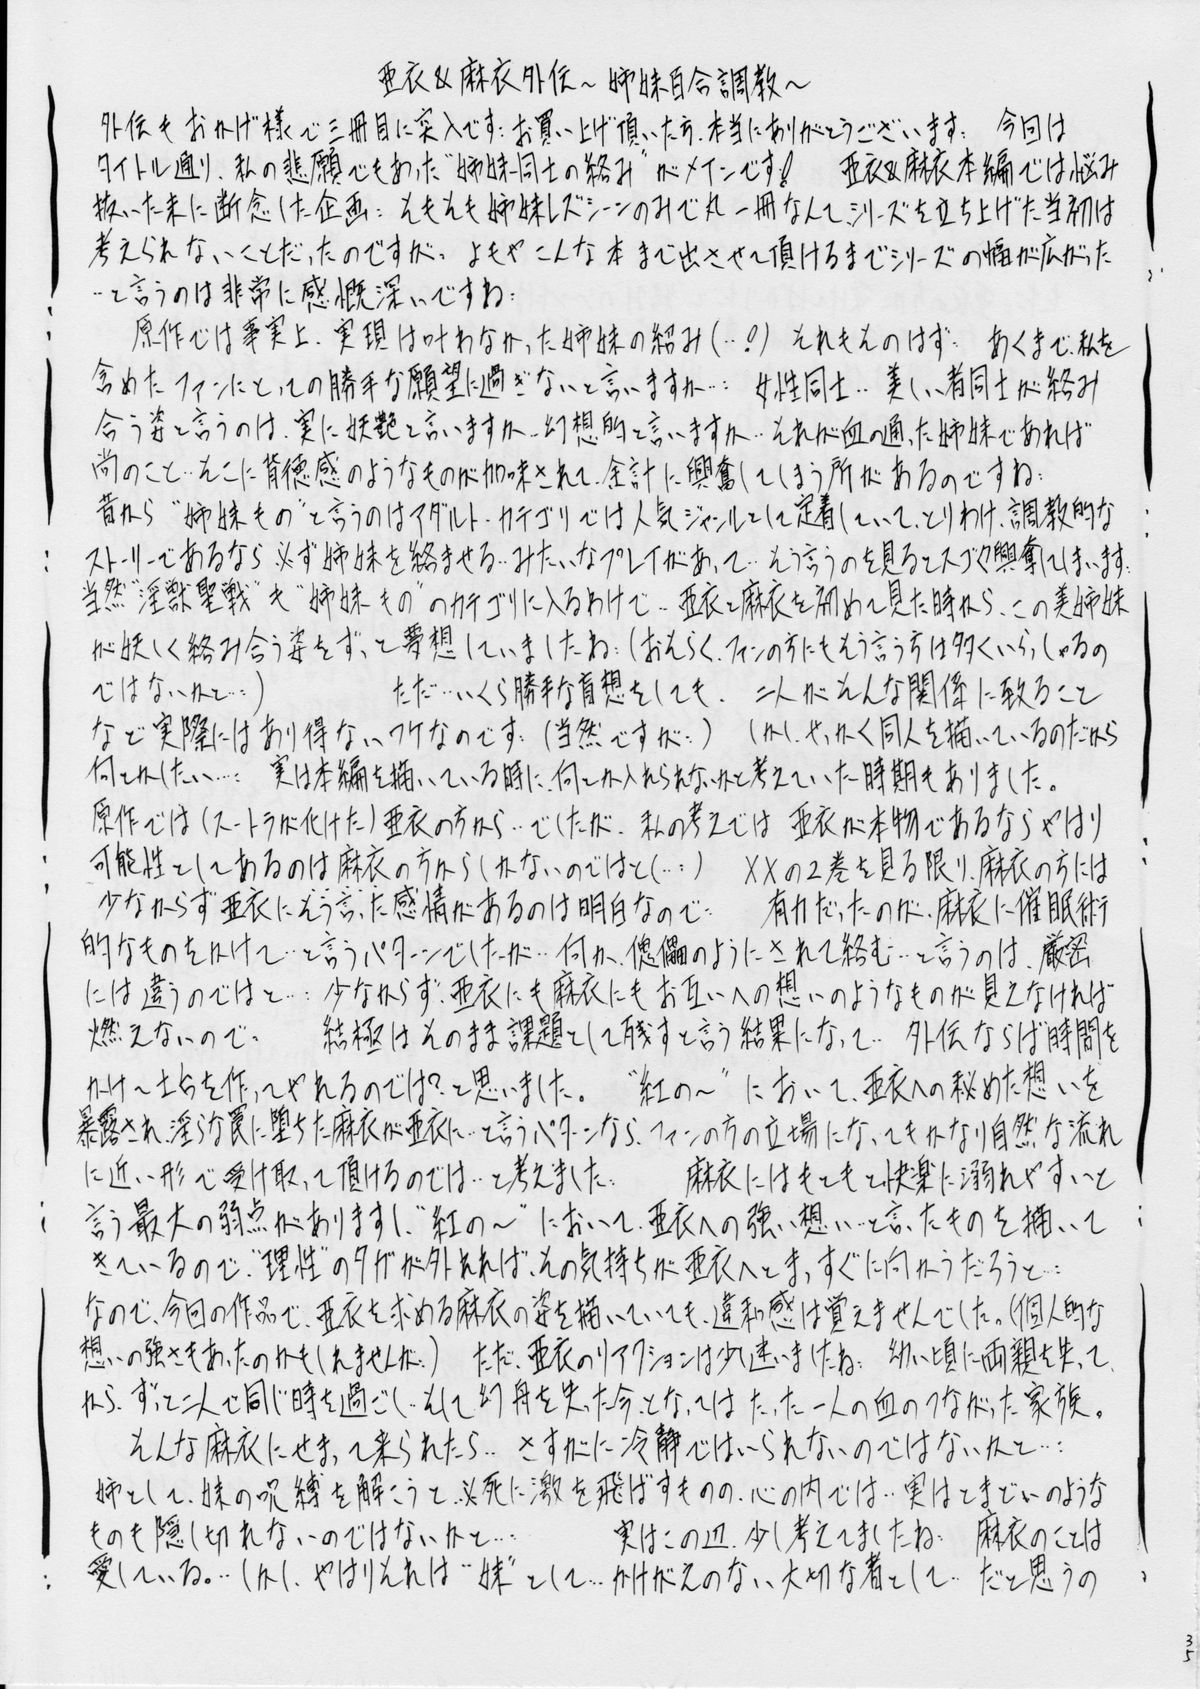 亜衣&麻衣外伝～姉妹百合調教～
外伝もおかげ様で三冊目に突入です… お買い上げ頂いた方、本当にありがとうございます… 今回は
タイトル通り、私の悲願でもあった"姉妹同士の絡み"がメインです! 亜衣&麻衣本編では悩み
抜いた末に断念した企画… そもそも姉妹レズシーンのみで丸一冊なんてシリーズを立ち上げた当初は
考えられないことだったのですが… よもやこんな本まで出させて頂けるまでシリーズの幅が広がった
…と言うのは非常に感慨深いですね…
原作では事実上、実現は叶わなかった姉妹の絡み(…!) それもそのはず… あくまで、私を
含めたファンにとっての勝手な願望に過ぎないと言いますか…… 女性同士… 美しい者同士が絡み
合う姿と言うのは、実に妖艶と言いますか…幻想的と言いますか… それが血の通った姉妹であれば
尚のこと…そこに背徳感のようなものが加味されて、余計に興奮してしまう所があるのですね…
昔から"姉妹もの"と言うのはアダルト・カテゴリでは人気ジャンルとして定着していて、とりわけ、調教的な
ストーリーであるなら必ず姉妹を絡ませる…みたいなプレイがあって… そう言うのを見るとスゴク興奮してしまいます…
当然"淫獣聖戦"も"姉妹もの"のカテゴリに入るわけで… 亜衣と麻衣を初めて見た時から、この美姉妹
が妖しく絡み合う姿をずっと夢想していましたね…(おそらく、ファンの方にもそう言う方は多くいらっしゃるの
ではないかと……) ただ…いくら勝手な妄想をしても、二人がそんな関係に致ること
など実際にはあり得ないワケなのです…(当然ですが…) しかし、せっかく同人を描いているのだから
何とかしたい…… 実は本編を描いている時に、何とか入れられないかと考えていた時期もありました。
原作では(スートラが化けた)亜衣の方から…でしたが、私の考えでは 亜衣が本物であるならやはり
可能性としてあるのは麻衣の方からしかないのではと(……) XXの2巻を見る限り、麻衣の方には
少なからず亜衣にそう言った感情があるのは明白なので… 有力だったのが、麻衣に催眠術
的なものをかけて…と言うパターンでしたが… 何か、傀儡のようにされて絡む…と言うのは、厳密
には違うのではと…… 少なからず、亜衣にも麻衣にもお互いへの想いのようなものが見えなければ
燃えないので… 結極はそのまま課題として残すと言う結果になって… 外伝ならば時間を
かけ～土台を作ってやれるのでは?と思いました。 "紅の～"において、亜衣への秘めた想いを
暴露され、淫らな罠に堕ちた麻衣が亜衣に…と言うパターンなら、ファンの方の立場になってもかなり自然な流れ
に近い形で受け取って頂けるのでは…と考えました… 麻衣にはもともと快楽に溺れやすいと
言う最大の弱点がありますし、"紅の～"において、亜衣への強い想い…と言ったものを描いて
きているので、"理性"のタガが外れれば、その気持ちが亜衣へとまっすぐに向かうだろうと……
なので、今回の作品で、亜衣を求める麻衣の姿を描いていても、違和感は覚えませんでした。(個人的な
想いの強さもあったのかもしれませんが…) ただ、亜衣のリアクションは少し迷いましたね… 幼い頃に両親を失って
から、ずっと二人で同じ時を過ごし…そして幻舟を失った今となってはたった一人の血のつながった家族。
そんな麻衣にせまって来られたら… さすがに冷静ではいられないのではないかと……
姉として、妹の呪縛を解こうと、必死に激を飛ばすものの、心の内では…実はとまどいのような
ものも隠し切れないのではないかと…… 実はこの辺、少し考えてましたね… 麻衣のことは
愛している。…しかし、やはりそれは"妹"として… かけがえのない、大切な者として… だと思うの
35